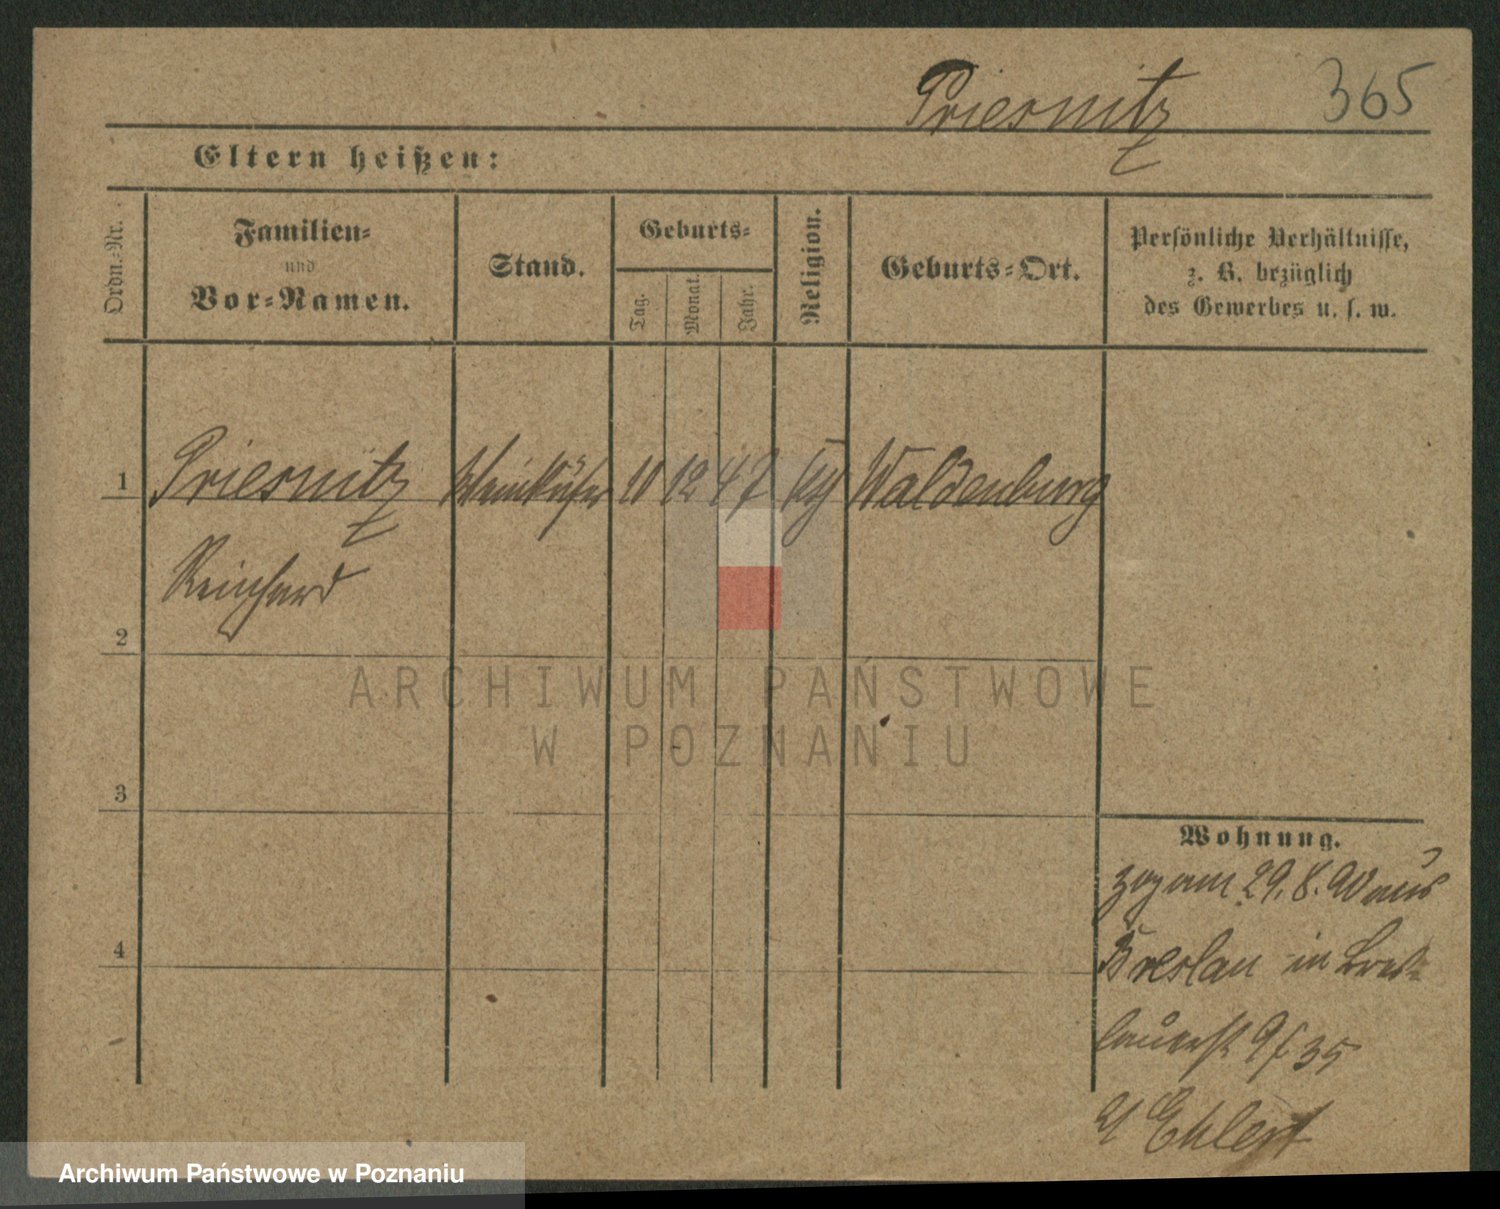 Priesnitz 365
Eltern heißen:
Ordn.-Nr.
Familien-
und
Vor-Namen.
Stand.
Geburts-
Tag.
Monat.
Jahr.
Religion.
Geburts-Ort.
Persönliche Verhältnisse,
z. B. bezüglich
des Gewerbes u. s. w.
1 Priesnitz Weinküfer 11 12 47 Waldenburg
Reinhard
2
3
4
Wohnung.
zog am 29.8.90 aus
Breslau in Bres-
lauerst 9 / 35
Ehlert
ARCHIWUM PAŃSTWOWE
W POZNANIU
Archiwum Państwowe w Poznaniu